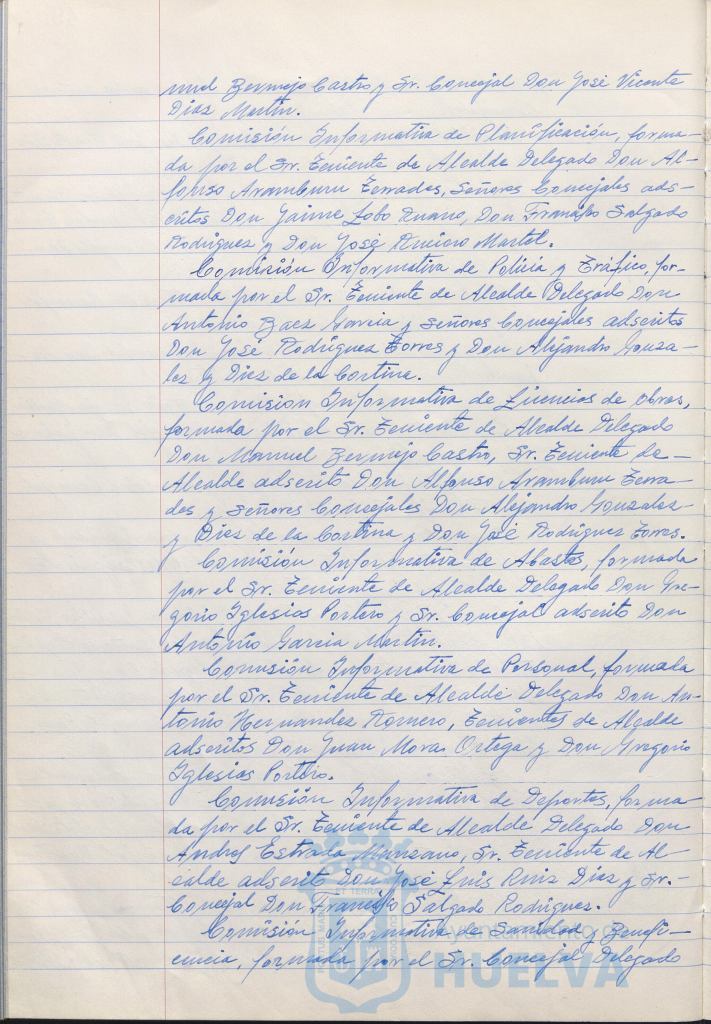 nuel Bermejo Castro y Sr. Concejal Don José Vicente
Diaz Martin.
Comisión Informativa de Planificación, forma-
da por el Sr. Teniente de Alcalde Delegado Don Al-
fonso Aramburu Terrades, Señores Concejales ads-
critos Don Jaime Lobo Ruano, Don Francisco Salgado
Rodriguez y Don José Martel.
Comisión Informativa de Policia y Tráfico, for-
mada por el Sr. Teniente de Alcalde Delegado Don
Antonio Baez Garcia y Señores Concejales adscritos
Don José Rodriguez Torres y Don Alejandro Gonza-
lez y Diez de la Cortina.
Comision Informativa de Licencias de Obras,
formada por el Sr. Teniente de Alcalde Delegado
Don Manuel Bermejo Castro, Sr. Teniente de
Alcalde adscrito Don Alfonso Aramburu Terra-
des y Señores Concejales Don Alejandro Gonzalez
y Diez de la Cortina y Don José Rodriguez Torres.
Comisión Informativa de Abastos, formada
por el Sr. Teniente de Alcalde Delegado Don Gre-
gorio Iglesias Portero y Sr. Concejal adscrito Don
Antonio Garcia Martin.
Comisión Informativa de Personal, formada
por el Sr. Teniente de Alcalde Delegado Don An-
tonio Hernandez Romero, Tenientes de Alcalde
adscritos Don Juan Mora Ortega y Don Gregorio
Iglesias Portero.
Comisión Informativa de Deportes, forma-
da por el Sr. Teniente de Alcalde Delegado Don
Andres Estrada Manzano, Sr. Teniente de Al-
calde adscrito Don José Luis Ruiz Diaz y Sr.
Concejal Don Francisco Salgado Rodriguez.
Comisión Informativa de Sanidad y Benefi-
cencia, formada por el Sr. Concejal Delegado
Ayuntamiento de
HUELVA